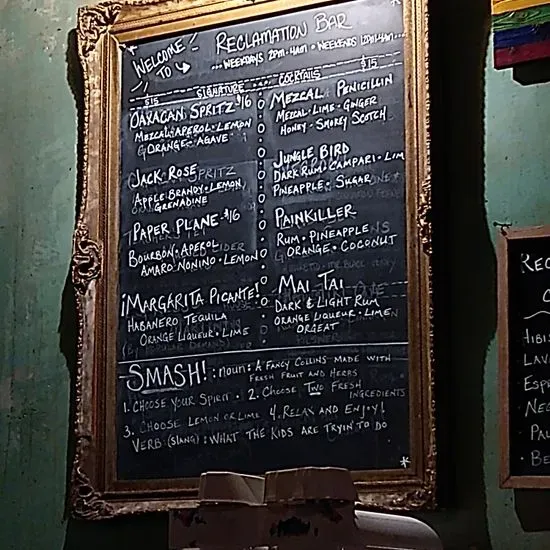 WELCOME TO RECLAMATION BAR
... WEEKDAYS 2PM-4AM • WEEKENDS 12PM-4AM...
$15 SIGNATURE COCKTAILS $15
OAXACAN SPRITZ $16
MEZCAL • APEROL • LEMON
ORANGE • AGAVE
JACK ROSE
APPLE BRANDY • LEMON
GRENADINE
PAPER PLANE - $16
BOURBON • APEROL
AMARO NONINO • LEMON
¡MARGARITA PICANTE!
HABANERO TEQUILA
ORANGE LIQUEUR • LIME
MEZCAL PENICILLIN
MEZCAL • LIME • GINGER
HONEY • SMOKEY SCOTCH
JUNGLE BIRD
DARK RUM • CAMPARI • LIM
PINEAPPLE • SUGAR
PAINKILLER
RUM • PINEAPPLE
ORANGE • COCONUT
MAI TAI
DARK & LIGHT RUM
ORANGE LIQUEUR • LIME
ORGEAT
SMASH! : noun: A FANCY COLLINS MADE WITH
FRESH FRUIT AND HERBS
1. CHOOSE YOUR SPIRIT • 2. CHOOSE TWO FRESH
INGREDIENTS
3. CHOOSE LEMON OR LIME 4. RELAX AND ENJOY!
VERB (SLANG) : WHAT THE KIDS ARE TRYIN TO DO
REC
HIBIS
LAV
ESP
NEG
PAL
BE